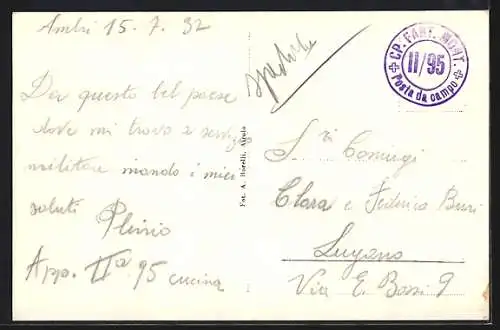 Ambrì 15. 7. 32
Da questo bel paese
dove mi trovo a servizio
militare mando i miei
saluti Plinio
App. IIa 95 cucina
Fot. A. Borelli, Airolo
CP. FANT. MONT.
II/95
Posta da campo
Coniugi
Clara e Federica
Lugano
Via E. Bossi 9